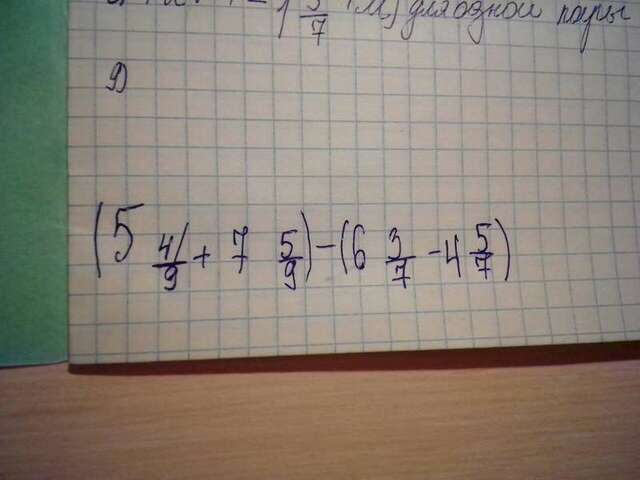 1 5/7 (м) для одной пары
(5 4/9 + 7 5/9) - (6 3/7 - 4 5/7)